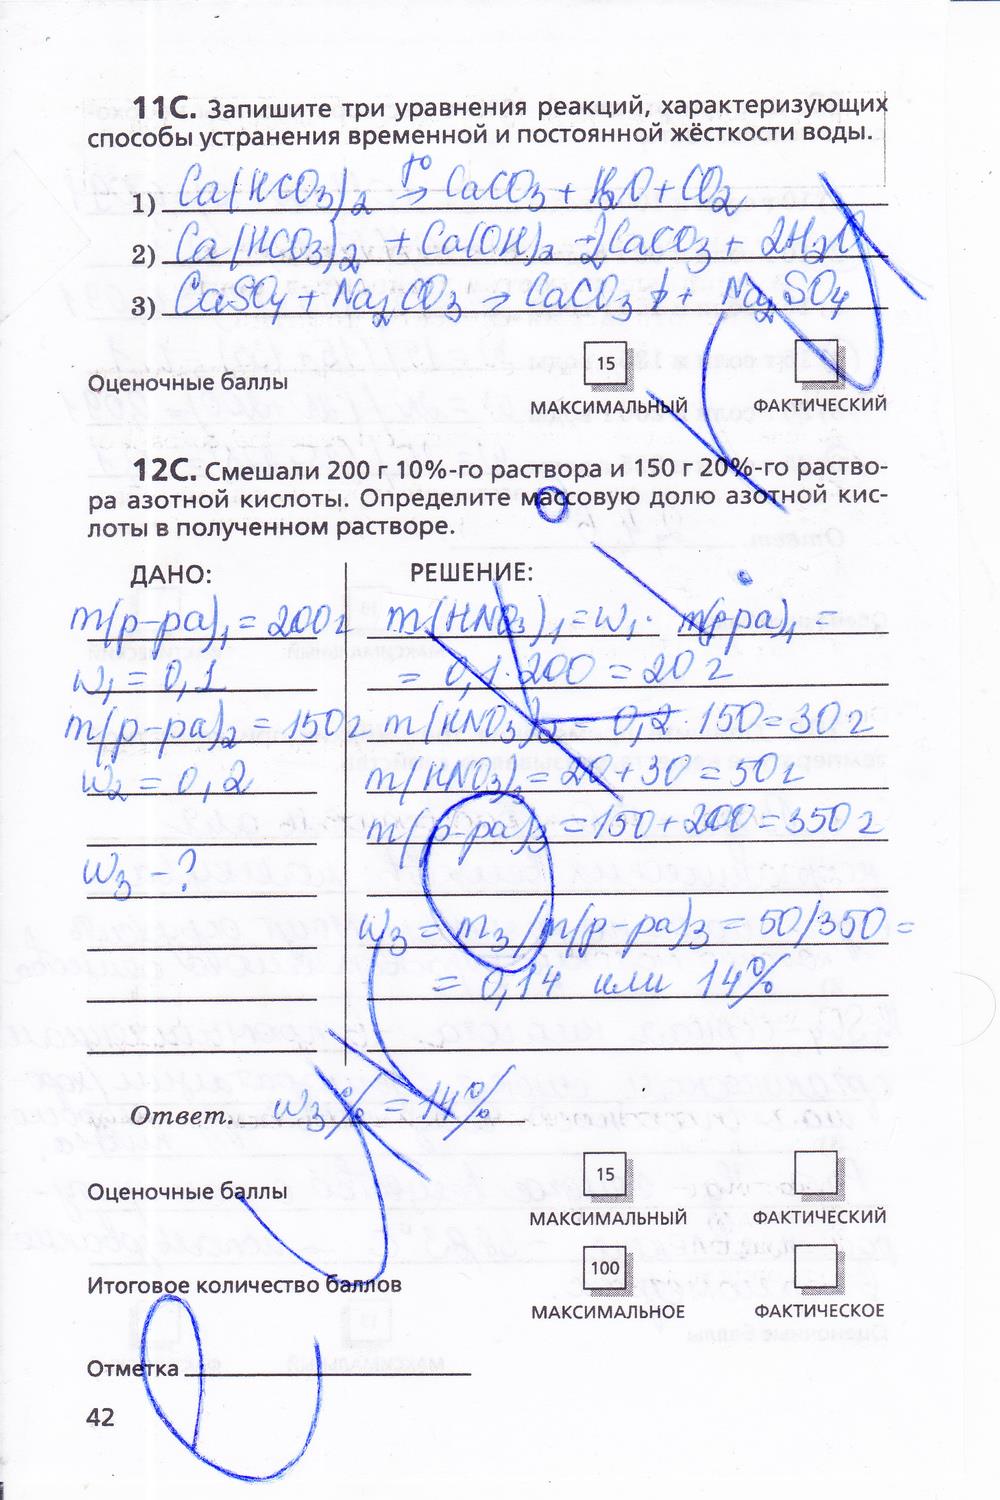 11С. Запишите три уравнения реакций, характеризующих
способы устранения временной и постоянной жёсткости воды.
1) Ca(HCO3)2 t° → CaCO3 + H2O + CO2
2) Ca(HCO3)2 + Ca(OH)2 → 2CaCO3 + 2H2O
3) CaSO4 + Na2CO3 → CaCO3↓ + Na2SO4
Оценочные баллы
15
МАКСИМАЛЬНЫЙ ФАКТИЧЕСКИЙ
12С. Смешали 200 г 10%-го раствора и 150 г 20%-го раство-
ра азотной кислоты. Определите массовую долю азотной кис-
лоты в полученном растворе.
ДАНО:
m(р-ра)1 = 200г
w1 = 0,1
m(р-ра)2 = 150г
w2 = 0,2
w3 - ?
РЕШЕНИЕ:
m(HNO3)1 = w1 · m(р-ра)1 =
= 0,1 · 200 = 20 г
m(HNO3)2 = 0,2 · 150 = 30 г
m(HNO3)3 = 20 + 30 = 50 г
m(р-ра)3 = 150 + 200 = 350 г
w3 = m3/m(р-ра)3 = 50/350 =
= 0,14 или 14%
Ответ. w3% = 14%
Оценочные баллы
15
МАКСИМАЛЬНЫЙ ФАКТИЧЕСКИЙ
Итоговое количество баллов
100
МАКСИМАЛЬНОЕ ФАКТИЧЕСКОЕ
Отметка
42